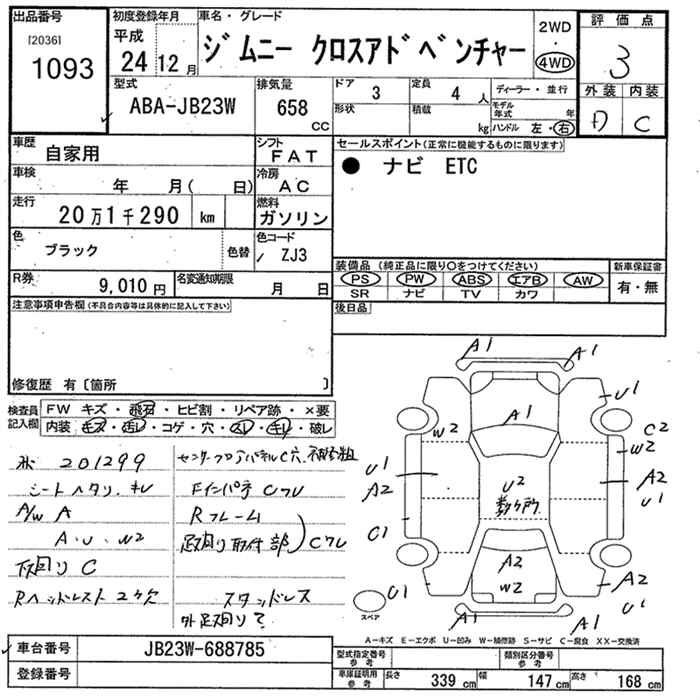 出品番号
[2036]
1093
初度登録年月
平成
24 12 月
車名・グレード
ジムニー クロスアドベンチャー
2WD
・
4WD
評価点
3
外装 内装
D C
型式
ABA-JB23W
排気量
658
CC
ドア
3
定員
4 人
形状
積載
kg
ディーラー・並行
モデル年式 年
ハンドル 左・右
車歴
自家用
シフト
FAT
車検
年 月( 日)
冷房
AC
走行
20万1千290 km
燃料
ガソリン
色
ブラック
色替
色コード
ZJ3
R券
9,010円
名変通知期限
月 日
セールスポイント(正常に機能するものに限ります)
● ナビ ETC
装備品 (純正品に限り○をつけてください)
PS PW ABS エアB AW
SR ナビ TV カワ
新車保証書
有・無
後日品
注意事項申告欄(不具合内容等は具体的に記入して下さい)
修復歴 有〔箇所 〕
検査員記入欄
FW キズ・飛石・ヒビ割・リペア跡・×要
内装 キズ・汚レ・コゲ・穴・スレ・キレ・破レ
201299
シートヘタリ、キレ
A/W A
A・U・W2
下回りC
Rヘッドレスト2ケ欠
センターフロアパネルC穴、補修粗
FインパネCクレ
Rフレーム
足回り取付部 Cクレ
スタッドレス
A1
A1
A1
U1
C2
W2
W2
U1
A2
A2
U1
U2
数ヶ所
C1
A2
W2
A2
U1
U1
A1
A1
スペア
A-キズ E-エクボ U-凹み W-補修跡 S-サビ C-腐食 XX-交換済
車台番号
JB23W-688785
登録番号
型式指定番号
参考
類別区分番号
参考
車庫証明用
参考
長さ 339 cm 幅 147 cm 高さ 168 cm